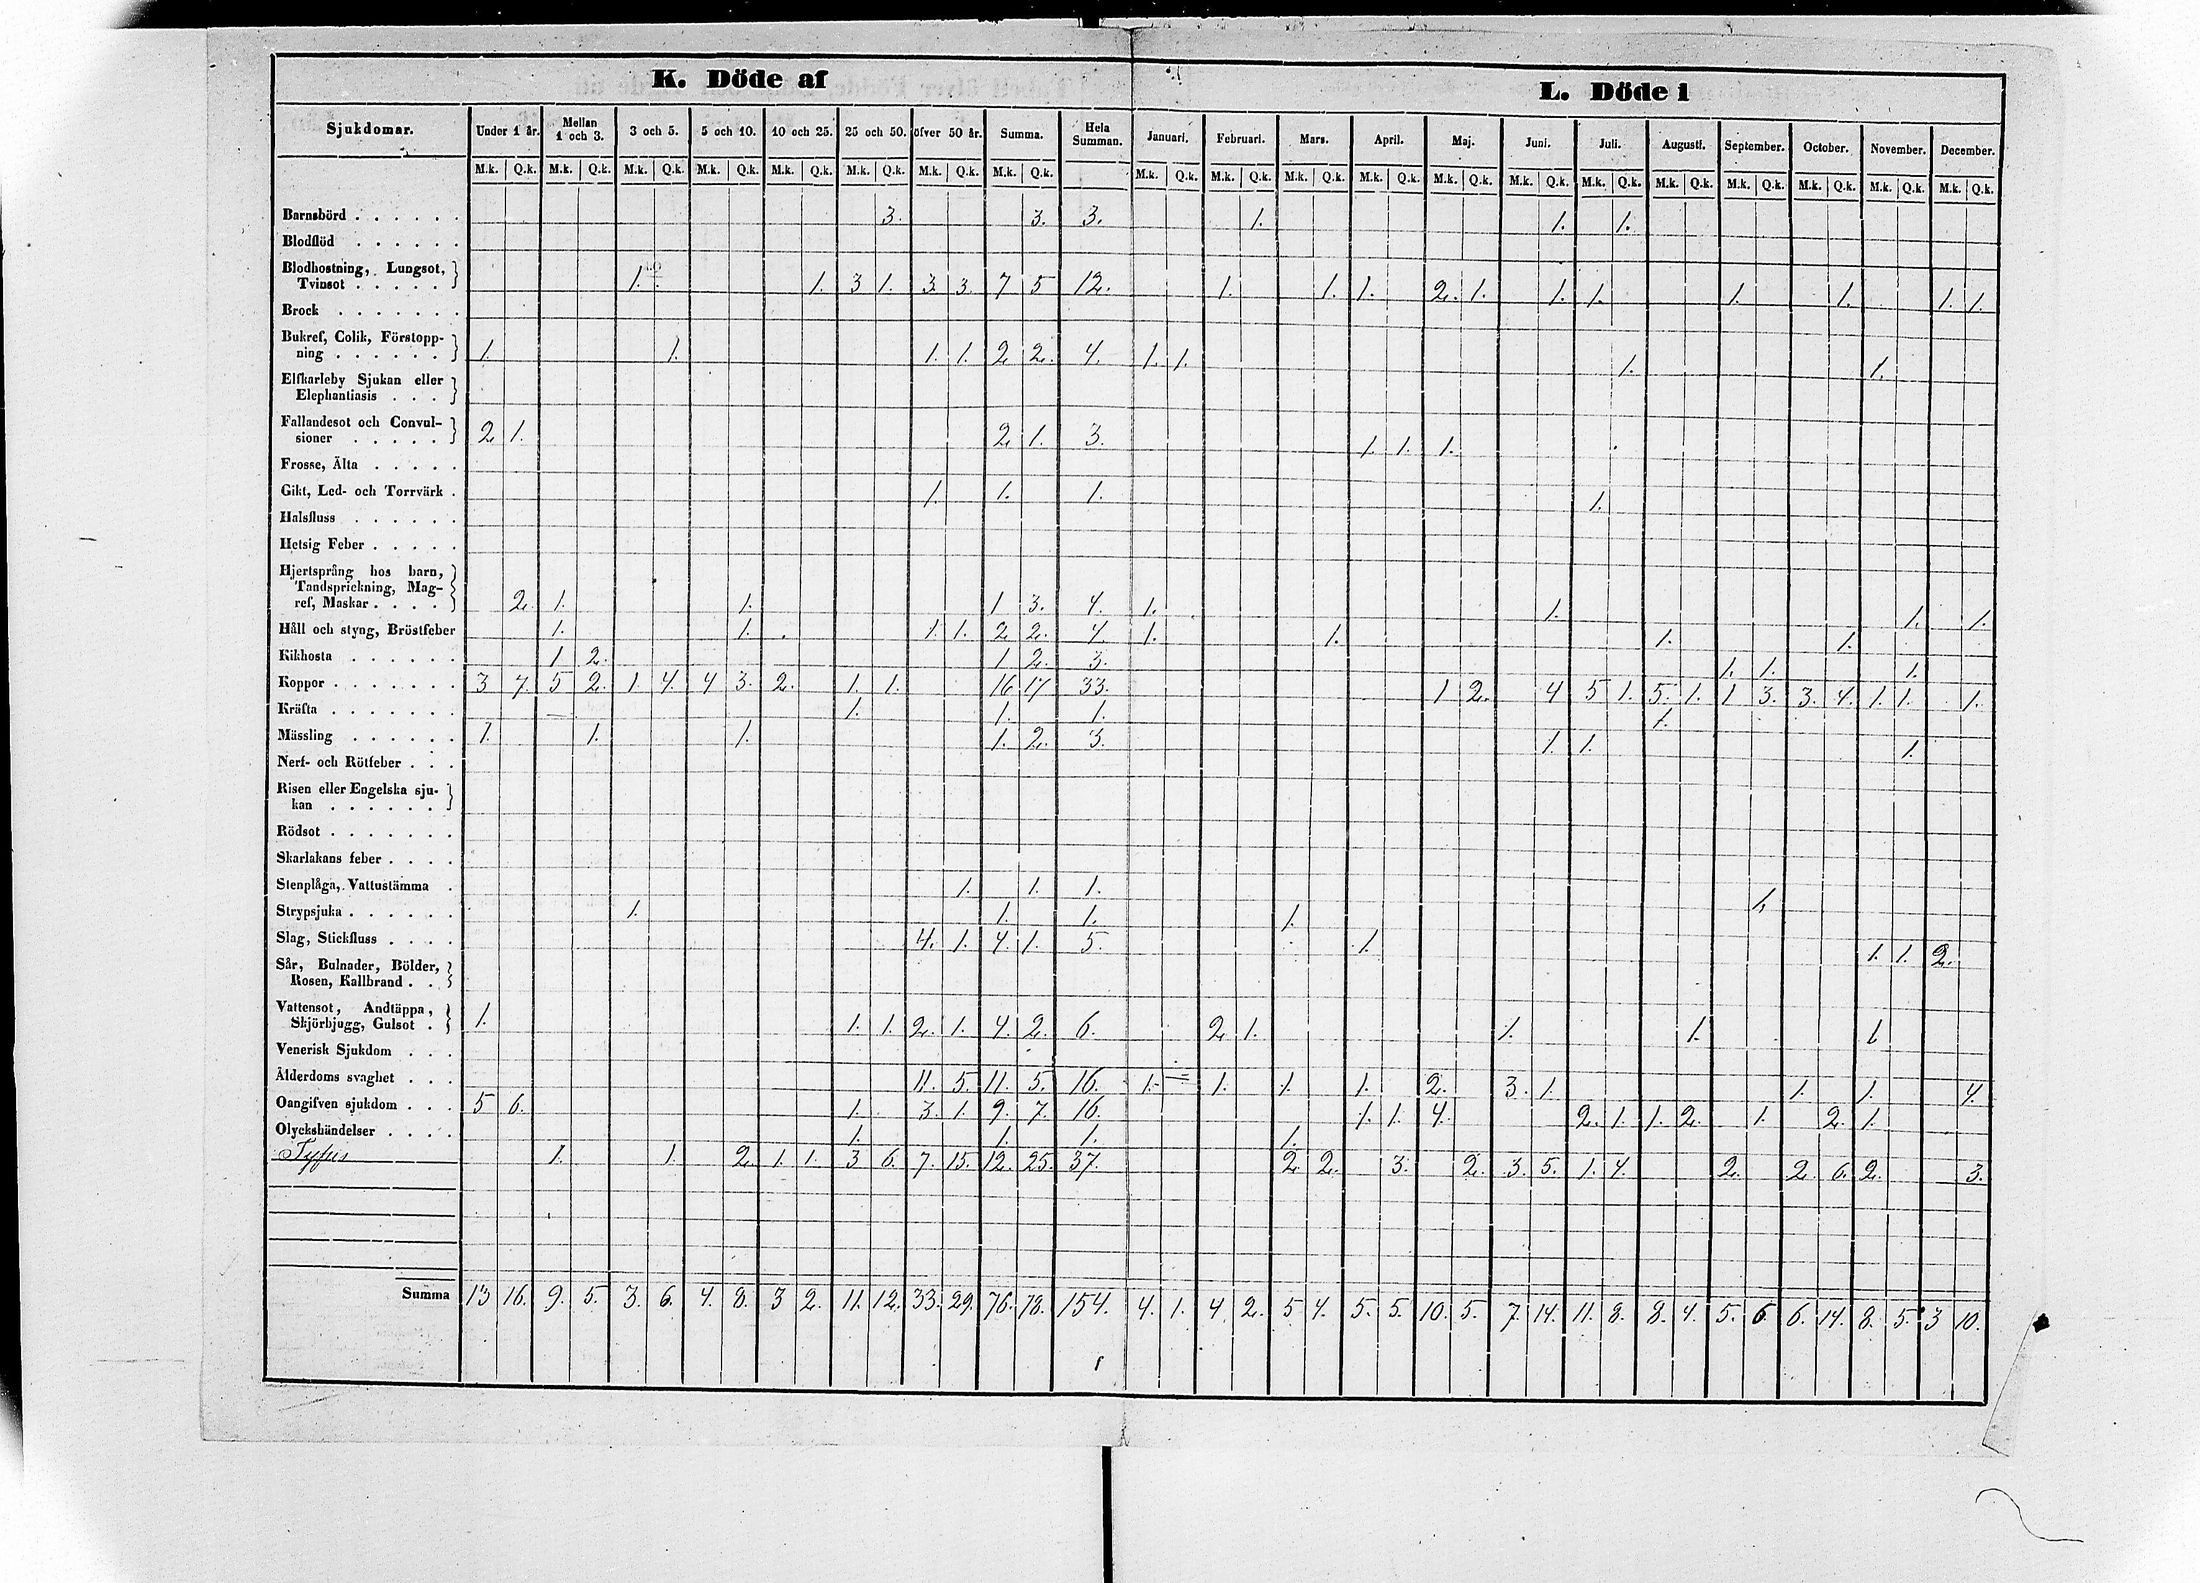 K. Döde af L. Döde i
Sjukdomar. Under 1 år. Mellan 1 och 3. 3 och 5. 5 och 10. 10 och 25. 25 och 50. öfver 50 år. Summa. Hela Summan. Januari. Februari. Mars. April. Maj. Juni. Juli. Augusti. September. October. November. December.
M.k. Q.k. M.k. Q.k. M.k. Q.k. M.k. Q.k. M.k. Q.k. M.k. Q.k. M.k. Q.k. M.k. Q.k. M.k. Q.k. M.k. Q.k. M.k. Q.k. M.k. Q.k. M.k. Q.k. M.k. Q.k. M.k. Q.k. M.k. Q.k. M.k. Q.k. M.k. Q.k. M.k. Q.k. M.k. Q.k.
Barnsbörd . . . . . . 3. 3. 3. 1. 1. 1.
Blodflöd . . . . . .
Blodhostning, Lungsot,
Tvinsot . . . . . 1. 1. 3 1. 3. 3. 7 5 12. 1. 1. 1. 2. 1. 1. 1. 1. 1. 1. 1.
Brock . . . . . . .
Bukref, Colik, Förstopp-
ning . . . . . . 1. 1. 1. 1. 2. 2. 4. 1. 1. 1. 1.
Elfkarleby Sjukan eller
Elephantiasis . . .
Fallandesot och Convul-
sioner . . . . . 2. 1. 2. 1. 3. 1. 1. 1.
Frosse, Älta . . . . .
Gikt, Led- och Torrvärk . 1. 1. 1. 1.
Halsfluss . . . . . .
Hetsig Feber . . . . .
Hjertsprång hos barn,
Tandsprickning, Mag-
ref, Maskar . . . . 2. 1. 1. 1 3. 4. 1. 1. 1. 1.
Håll och styng, Bröstfeber 1. 1. 1. 1. 2. 2. 4. 1. 1. 1. 1.
Kikhosta . . . . . . 1 2. 1 2. 3. 1. 1. 1.
Koppor . . . . . . . 3 7. 5 2. 1 4. 4 3. 2. 1. 1. 16 17 33. 1 2. 4 5 1. 5. 1. 1 3. 3. 4. 1. 1. 1.
Kräfta . . . . . . . 1. 1. 1. 1.
Mässling . . . . . . 1. 1. 1. 1. 2. 3. 1. 1. 1.
Nerf- och Rötfeber . . .
Risen eller Engelska sju-
kan . . . . . .
Rödsot . . . . . . .
Skarlakans feber . . . .
Stenplåga, Vattustämma . 1. 1. 1. 1.
Strypsjuka . . . . . . 1. 1. 1. 1.
Slag, Stickfluss . . . . 4. 1. 4. 1. 5. 1. 1. 1. 2.
Sår, Bulnader, Bölder,
Rosen, Kallbrand . .
Vattensot, Andtäppa,
Skjörbjugg, Gulsot . 1. 1. 1. 2. 1. 4. 2. 6. 2. 1. 1. 1. 1
Venerisk Sjukdom . . .
Ålderdoms svaghet . . . 11. 5. 11. 5. 16. 1. 1. 1. 1. 2. 3. 1. 1. 1. 4.
Oangifven sjukdom . . . 5 6. 1. 3. 1. 9. 7. 16. 1. 1. 4. 2. 1. 1. 2. 1. 2. 1.
Olyckshändelser . . . . 1. 1. 1. 1.
Tyfus 1. 1. 2. 1. 1. 3 6. 7. 15. 12. 25. 37. 2. 2. 3. 2. 3. 5. 1. 4. 2. 2. 6. 2. 3.
Summa 13 16. 9. 5. 3. 6. 4. 8. 3 2. 11. 12. 33. 29. 76. 78. 154. 4. 1. 4. 2. 5 4. 5. 5. 10. 5. 7. 14. 11. 8. 8. 4. 5. 6. 6. 14. 8. 5. 3 10.